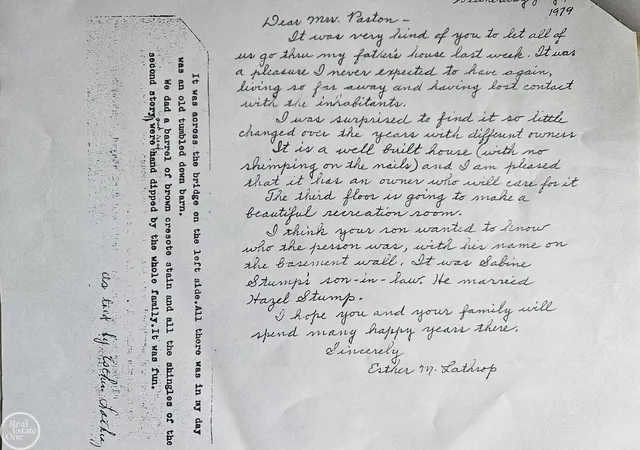 1979
Dear Mrs. Paston -
It was very kind of you to let all of
us go thru my father's house last week. It was
a pleasure I never expected to have again,
living so far away and having lost contact
with the inhabitants.
I was surprised to find it so little
changed over the years with different owners
It is a well built house (with no
skimping on the nails) and I am pleased
that it has an owner who will care for it
The third floor is going to make a
beautiful recreation room.
I think your son wanted to know
who the person was, with his name on
the basement wall. It was Sabine
Stump's son-in-law. He married
Hazel Stump.
I hope you and your family will
spend many happy years there.
Sincerely
Esther M. Lathrop
It was across the bridge on the left side. All there was in my day
was an old tumbled down barn.
We dad a barrel of brown cresote stain and all the shingles of the
second story were hand dipped by the whole family. It was fun.
as told by Esther
Real Estate One